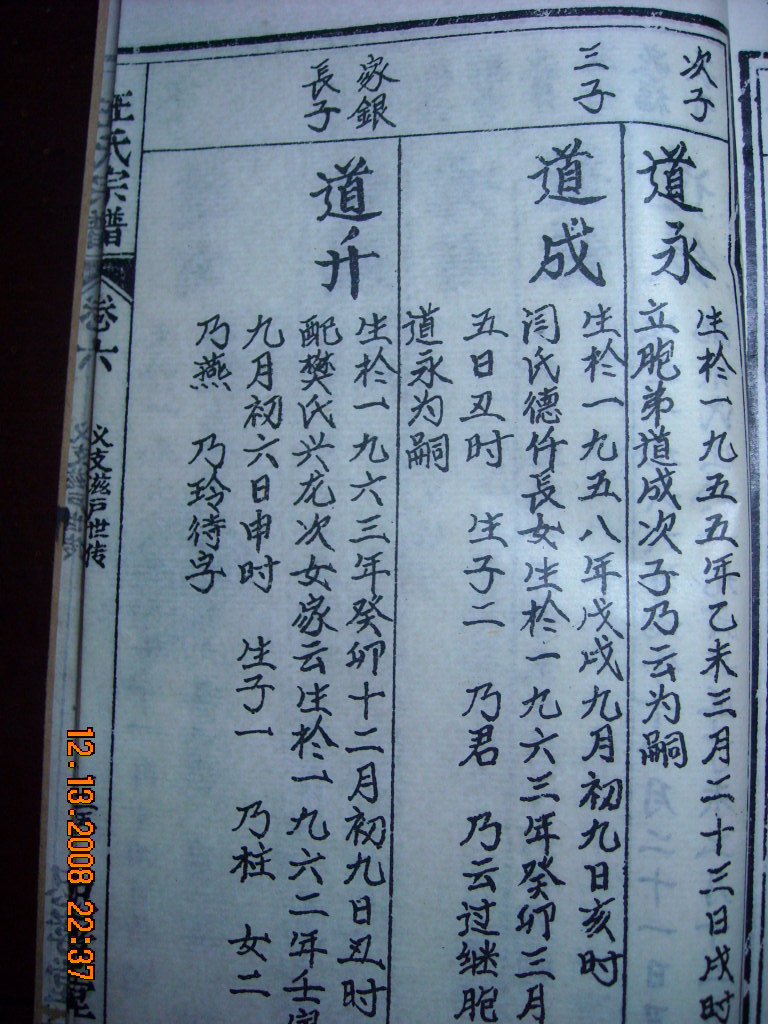 次子
道永
生於一九五五年乙未三月二十三日戌时
立胞弟道成次子乃云为嗣
三子
道成
生於一九五八年戊戌九月初九日亥时
闫氏德仟長女生於一九六三年癸卯三月
五日丑时 生子二 乃君 乃云过继胞
道永为嗣
家銀
長子
道升
生於一九六三年癸卯十二月初九日丑时
配樊氏兴龙次女家云生於一九六二年壬寅
九月初六日申时 生子一 乃柱 女二
乃燕 乃玲待字
汪氏宗譜
卷六
义支兹戸世传
12.13.2008 22:37